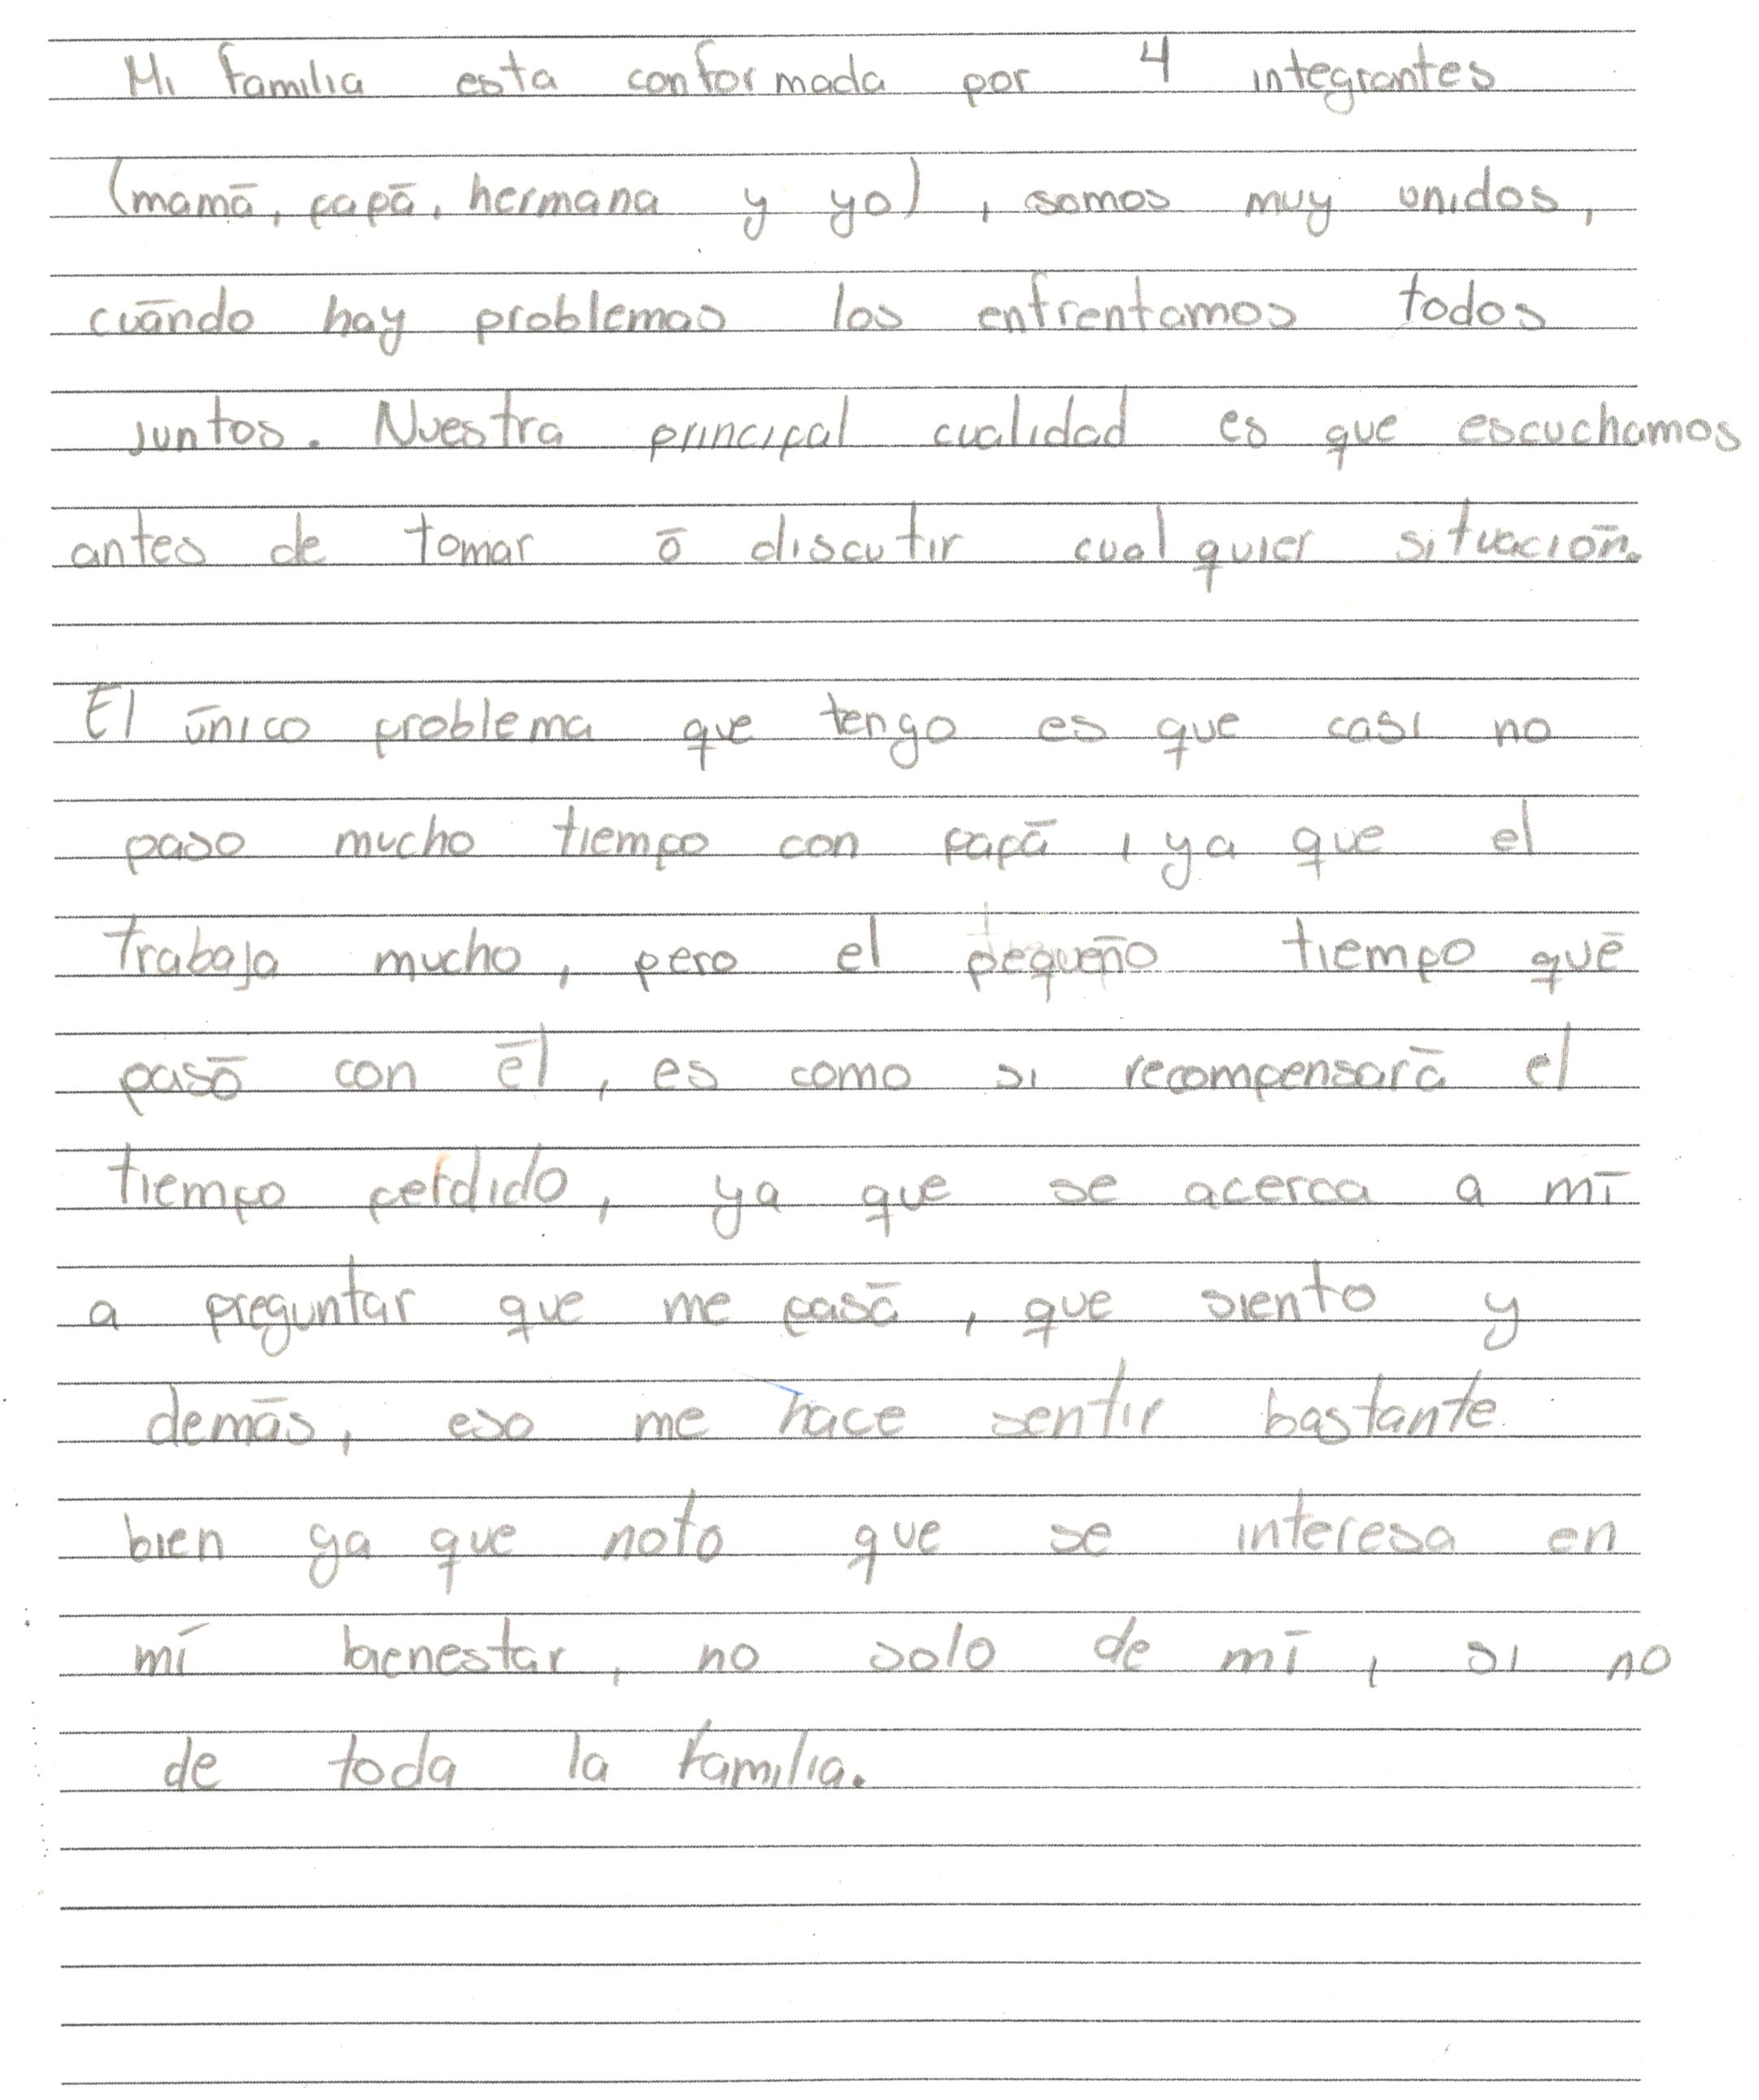 Mi familia esta conformada por 4 integrantes
(mamá, papá, hermana y yo), somos muy unidos,
cuándo hay problemas los enfrentamos todos
juntos. Nuestra principal cualidad es que escuchamos
antes de tomar ó discutir cualquier situación.
El único problema que tengo es que casi no
paso mucho tiempo con papá, ya que el
trabaja mucho, pero el pequeño tiempo qué
pasó con él, es como si recompensará el
tiempo perdido, ya que se acerca a mí
a preguntar que me pasá, que siento y
demás, eso me hace sentir bastante
bien ya que noto que se interesa en
mí bienestar, no solo de mí, si no
de toda la familia.